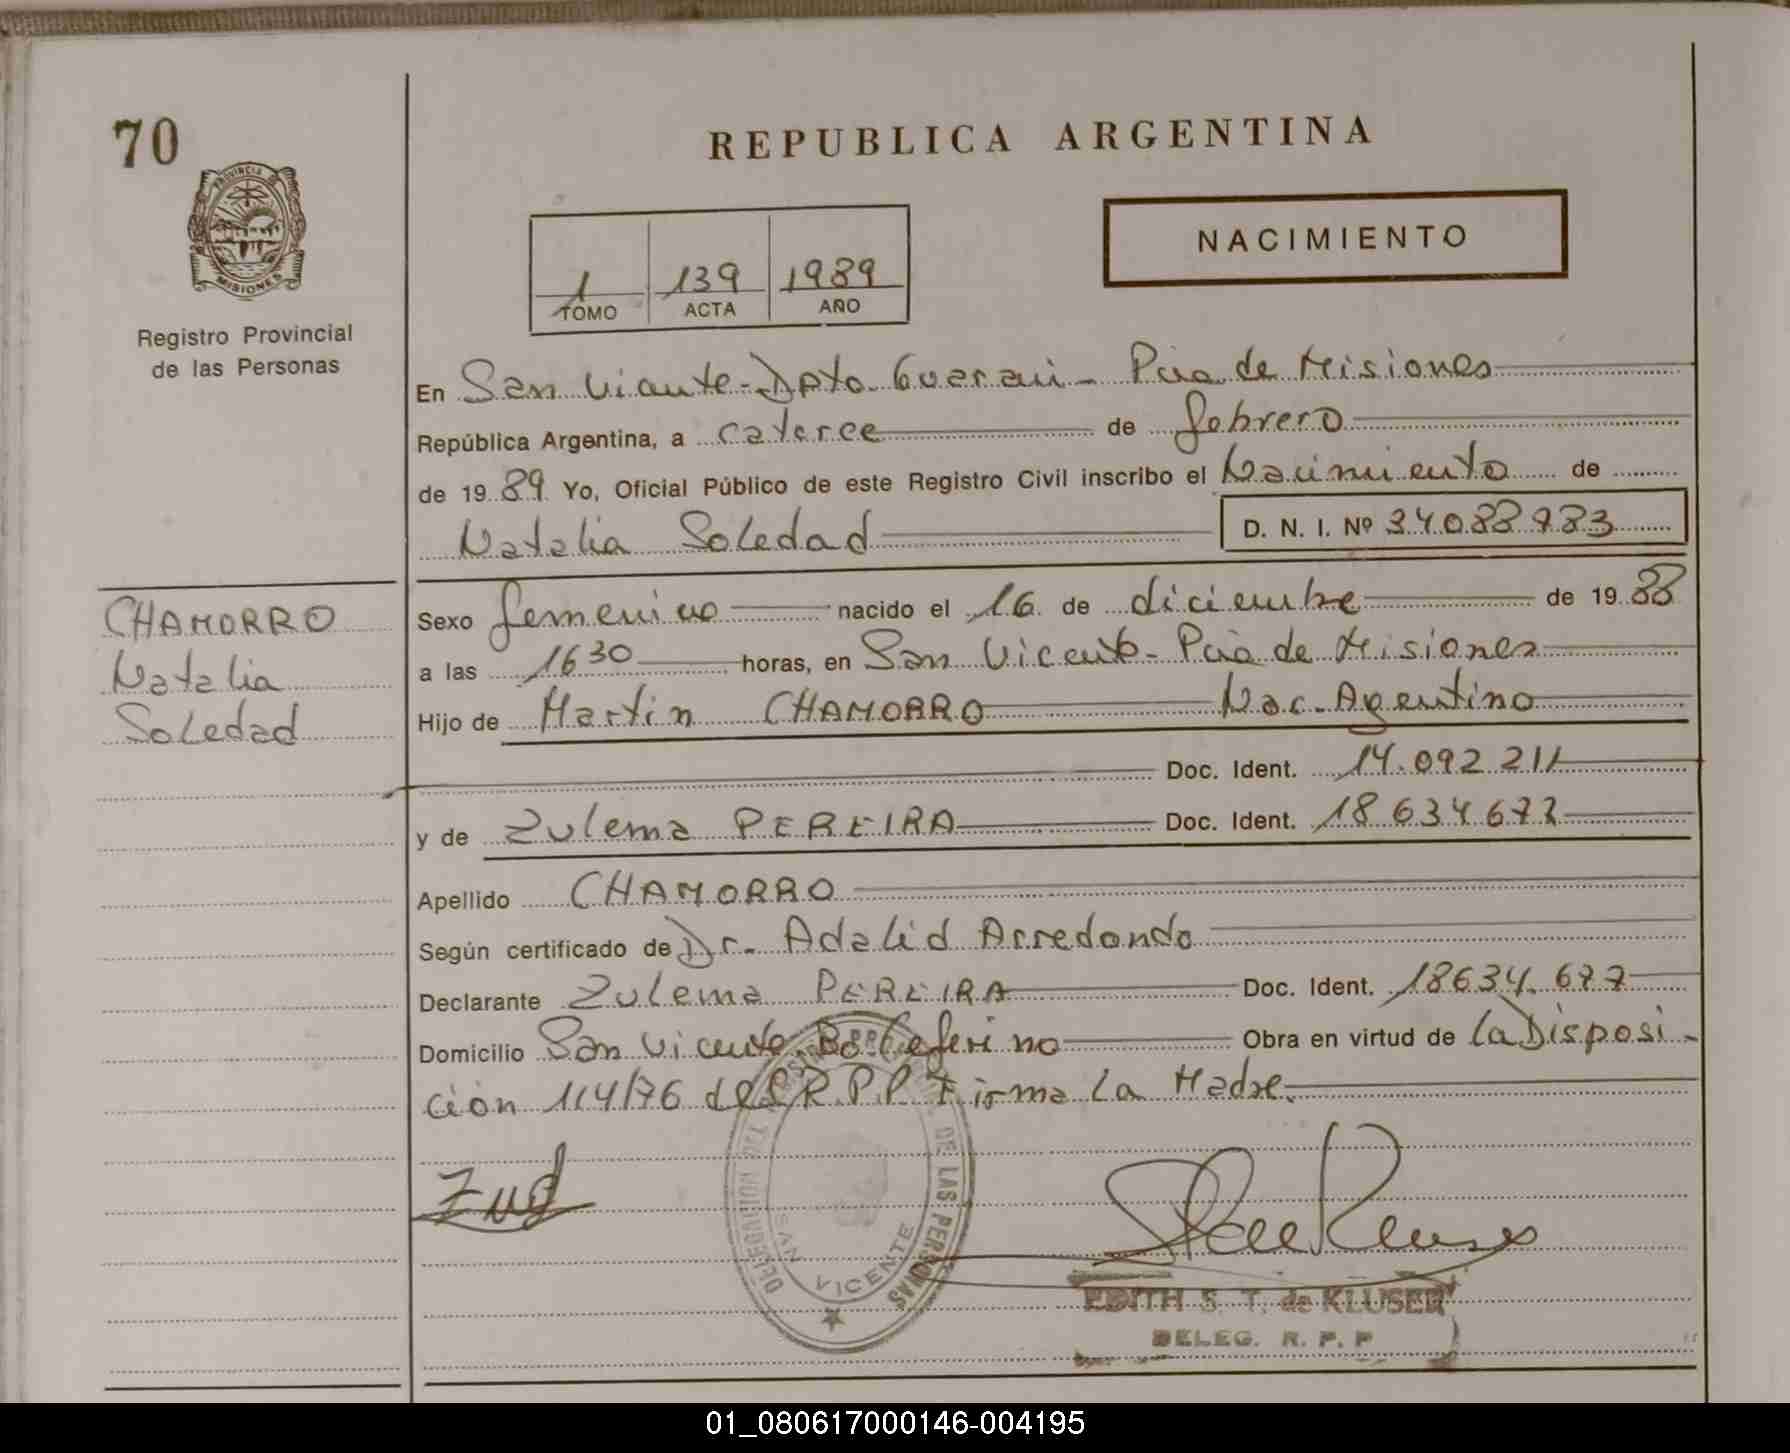 70
REPUBLICA ARGENTINA
PROVINCIA DE
MISIONES
NACIMIENTO
1 139 1989
TOMO ACTA AÑO
Registro Provincial
de las Personas
En San Vicente - Dpto. Guarani - Pcia de Misiones
República Argentina, a catorce de febrero
de 1989 Yo, Oficial Público de este Registro Civil inscribo el Nacimiento de
Natalia Soledad D. N. I. Nº 34088983
CHAMORRO
Natalia
Soledad
Sexo femenino nacido el 16 de diciembre de 1988
a las 1630 horas, en San Vicente - Pcia de Misiones
Hijo de Martin CHAMORRO Nac. Agentino
Doc. Ident. 14.092 211
y de Zulema PEREIRA Doc. Ident. 18 634 677
Apellido CHAMORRO
Según certificado de Dr. Adalid Arredondo
Declarante Zulema PEREIRA Doc. Ident. 18634.677
Domicilio San Vicente. Bº Ceferino Obra en virtud de la Disposi-
ción 114/76 del R.P.P. Firma La Madre.
DELEGACION
DE LAS PERSONAS
SAN VICENTE
EDITH S. T. de KLUSER
DELEG. R. P. P
01_080617000146-004195